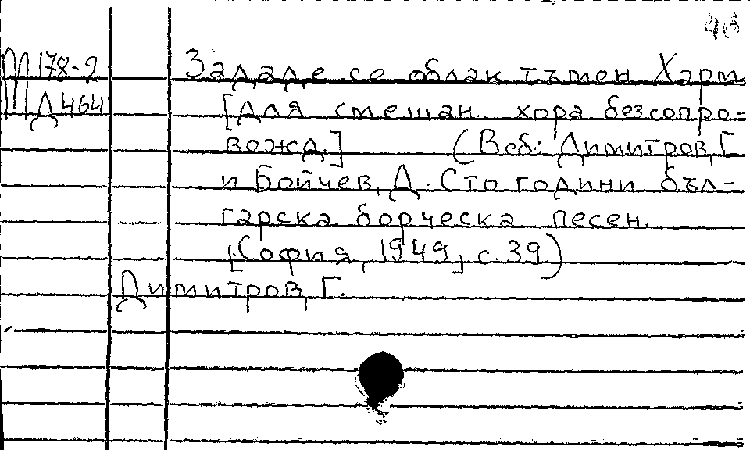 М 178-2
Д 464
Зададе се облак тъмен Харм.
[для смешан. хора безсопро-
вожд.] (В сб: Димитров, Г.
и Бойчев, Д. Сто години бъл-
гарска борческа песен.
[София, 1949, с. 39)
Димитров, Г.